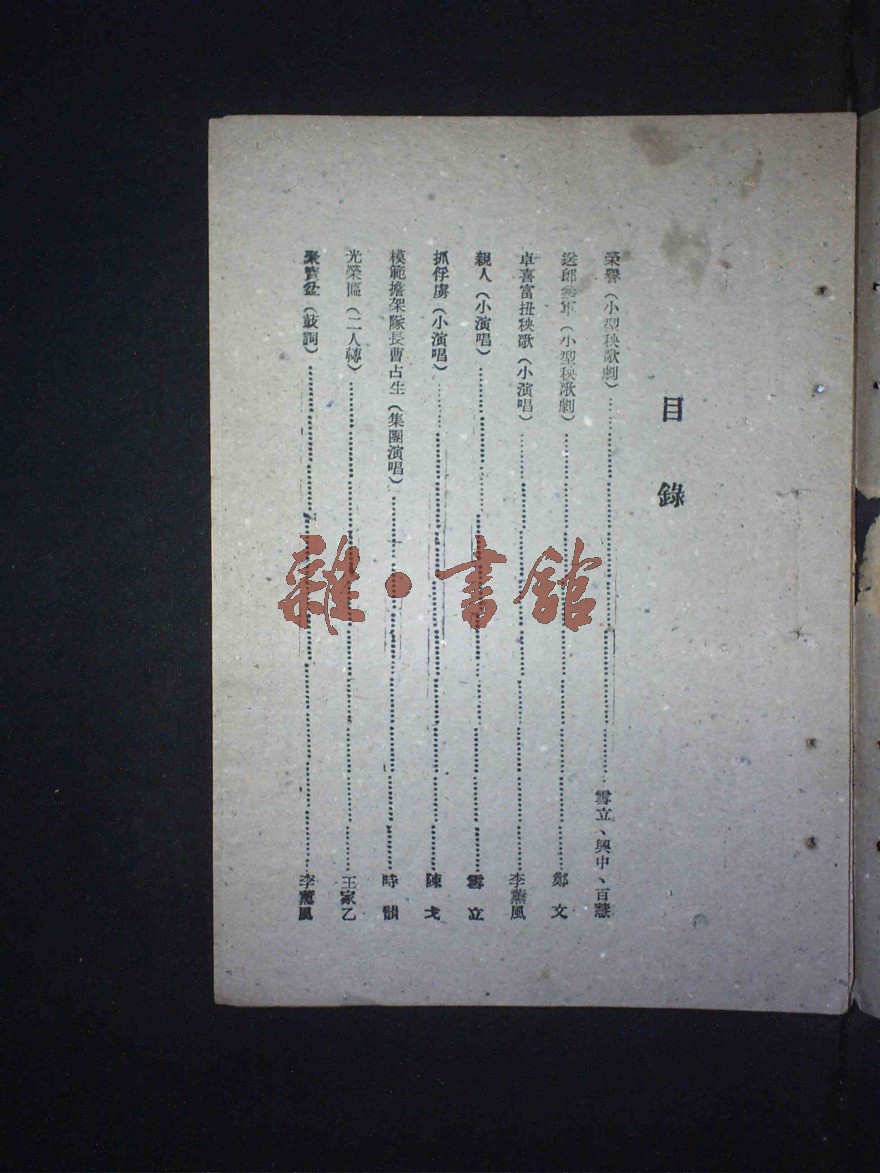 目錄
榮譽（小型秧歌劇）………雪立、興中、百慧
送郎參軍（小型秧歌劇）………鄭文
卓喜富扭秧歌（小演唱）………李薰風
親人（小演唱）………雪立
抓俘虜（小演唱）………陳戈
模範擔架隊長曹占生（集團演唱）………時
光榮區（二人轉）………王家乙
聚寶盆（鼓詞）………李薰風
雜·書館